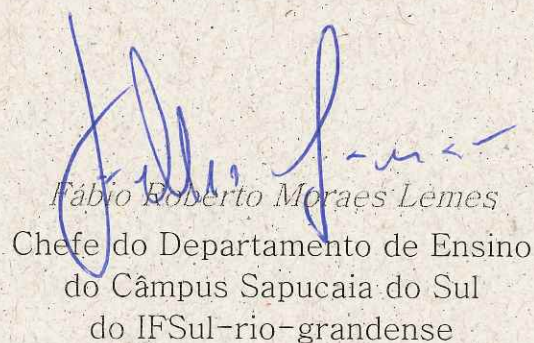 Fábio Roberto Moraes Lemes
Chefe do Departamento de Ensino
do Câmpus Sapucaia do Sul
do IFSul-rio-grandense